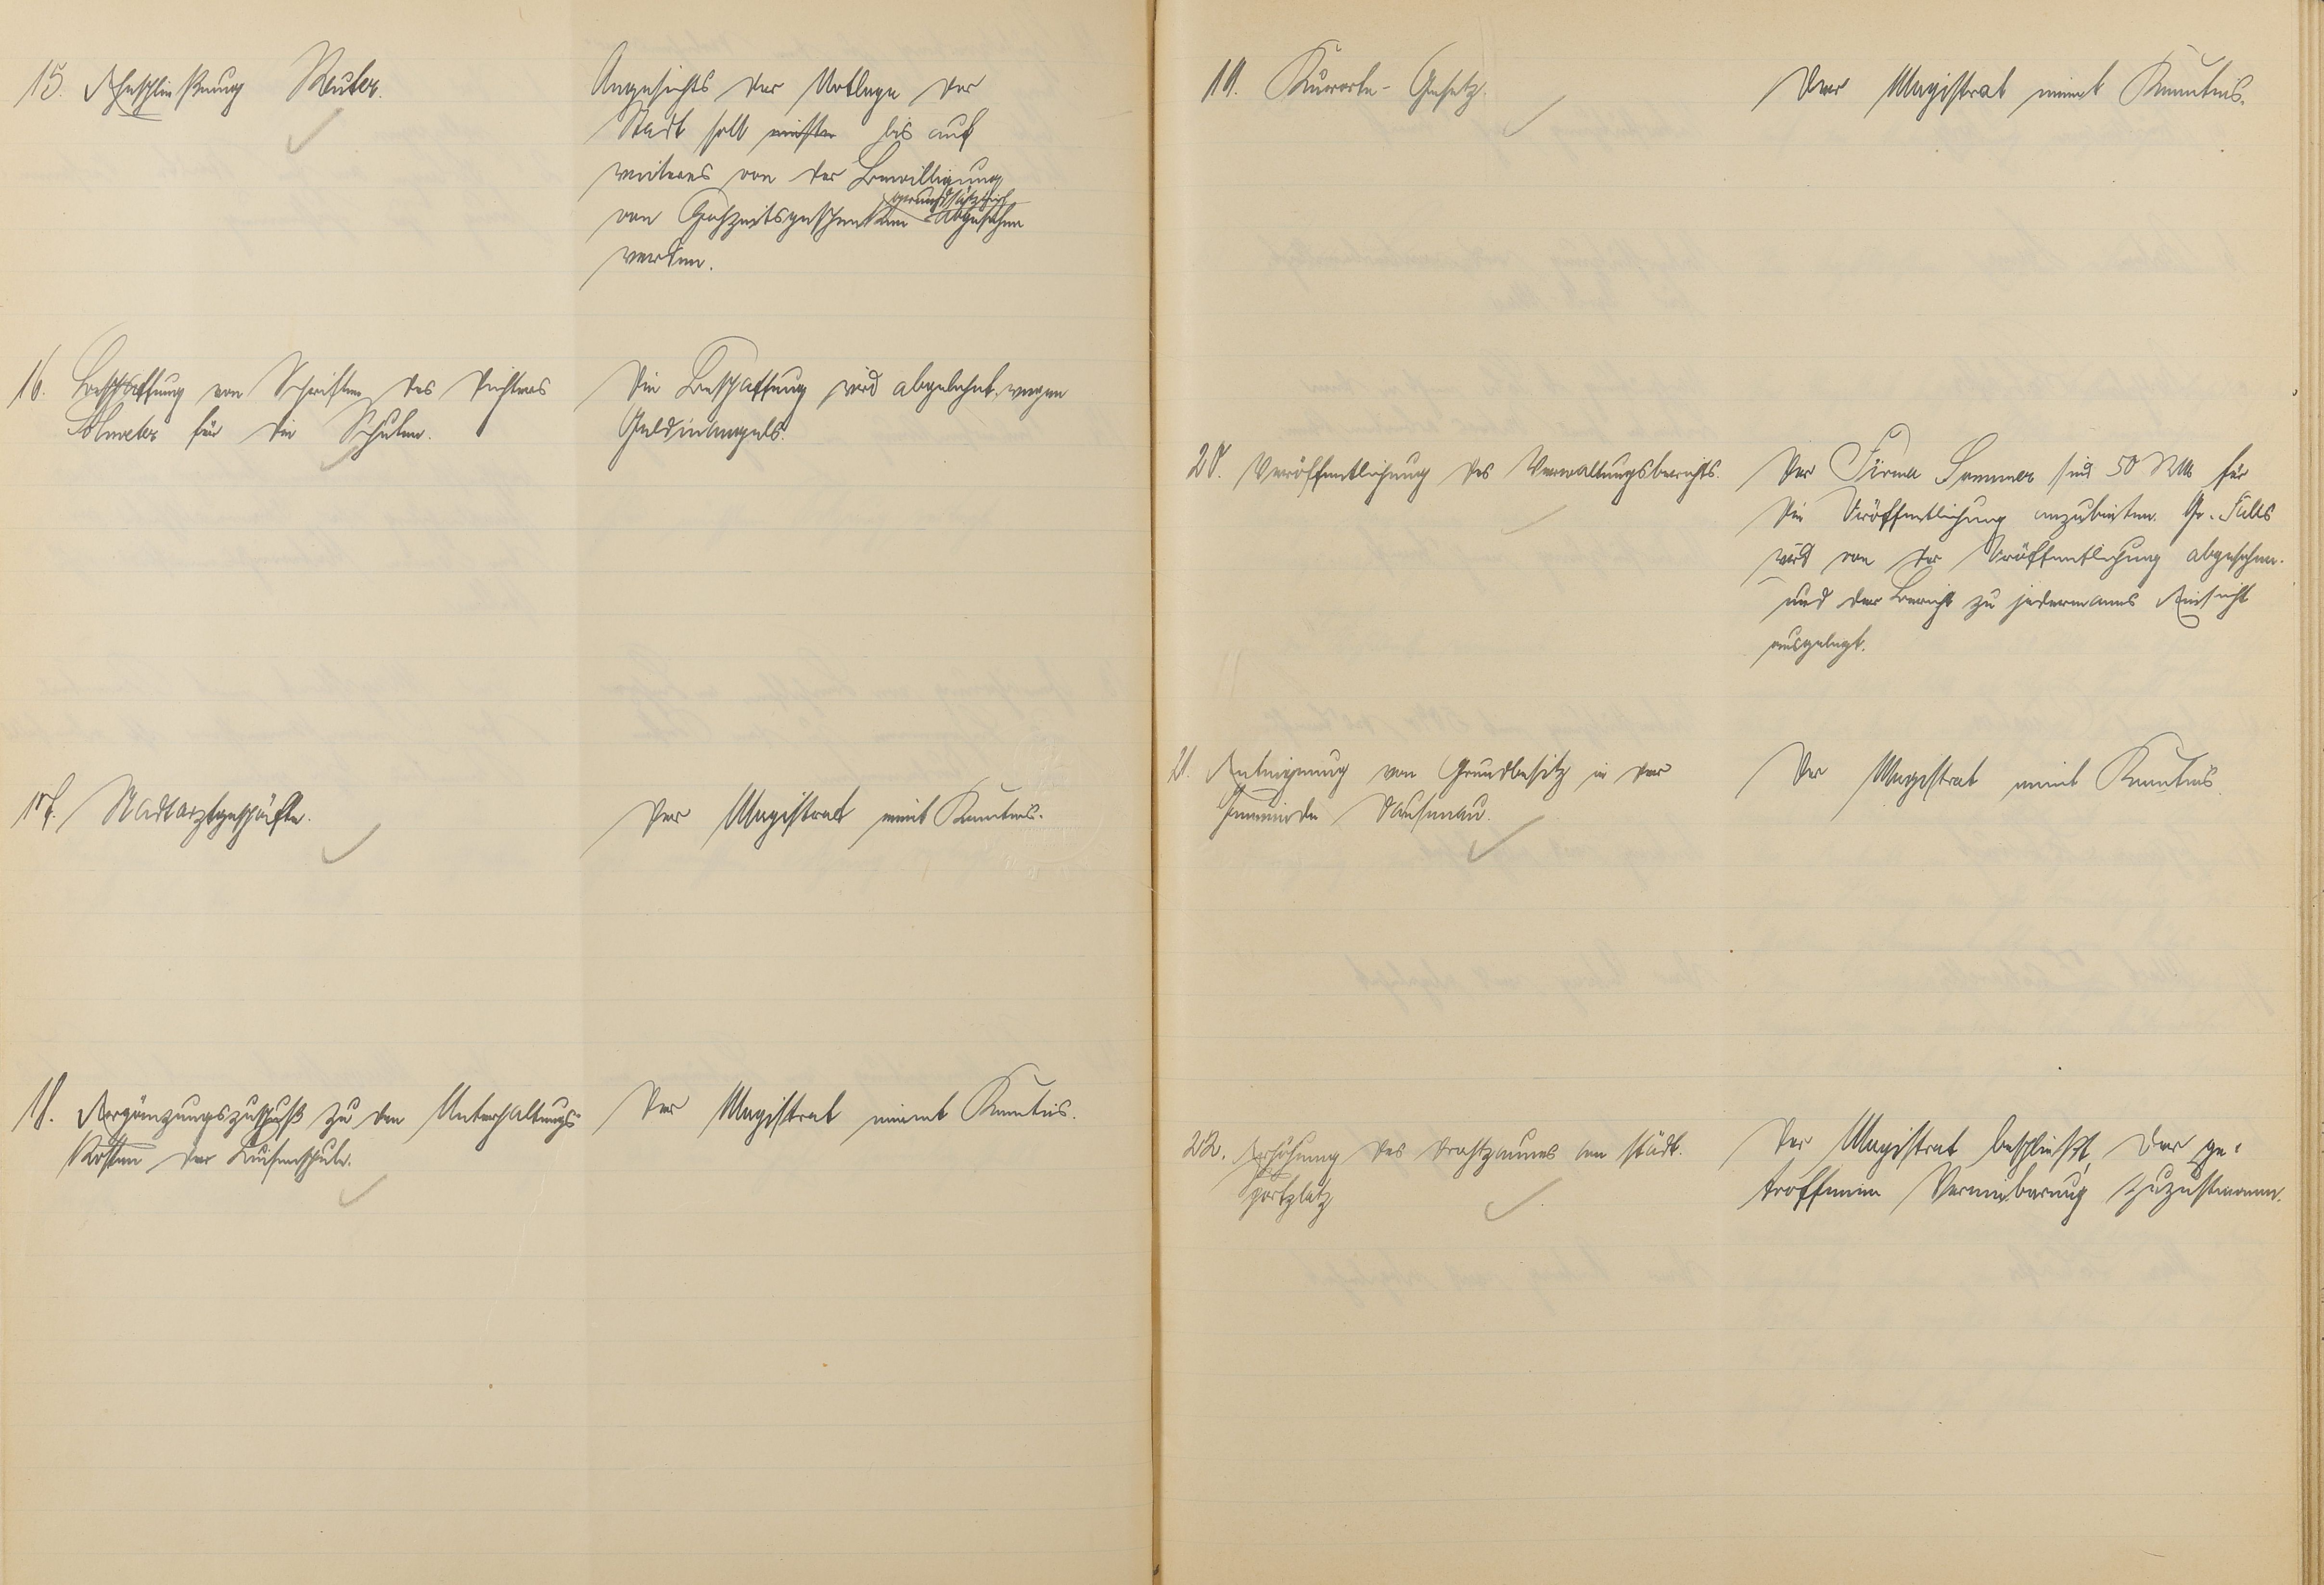 15. Eheschließung Reuter.
Angesichts der Notlage der
Stadt soll bis auf
weiteres von der Bewilligung
von Hochzeitsgeschenken grundsätzlich abgesehen
werden.
16. Beschaffung von Schriften des Dichters
für die Schulen.
Die Beschaffung wird abgelehnt wegen
Geldmangels.
17. Stadtarztgeschäfte.
Der Magistrat nimt Kenntnis.
18. Ergänzungszuschuß zu den Unterhaltungs-
kosten der Luisenschule.
Der Magistrat nimmt Kenntnis.
19. Kurorte-Gesetz.
Der Magistrat nimmt Kenntnis.
20. Veröffentlichung des Verwaltungsberichts.
Der Firma Sommer sind 50 RM für
die Veröffentlichung anzubieten. Falls
wird von der Veröffentlichung abgesehen
und der Bericht zu jedermanns Einsicht
ausgelegt.
21. Enteignung von Grundbesitz in der
Gemeinde Dausenau.
Der Magistrat nimt Kenntnis
22. Erhöhung des Drahtzaunes am städt.
Sportplatz
Der Magistrat beschließt, der ge-
troffenen Vereinbarung zuzustimmen.